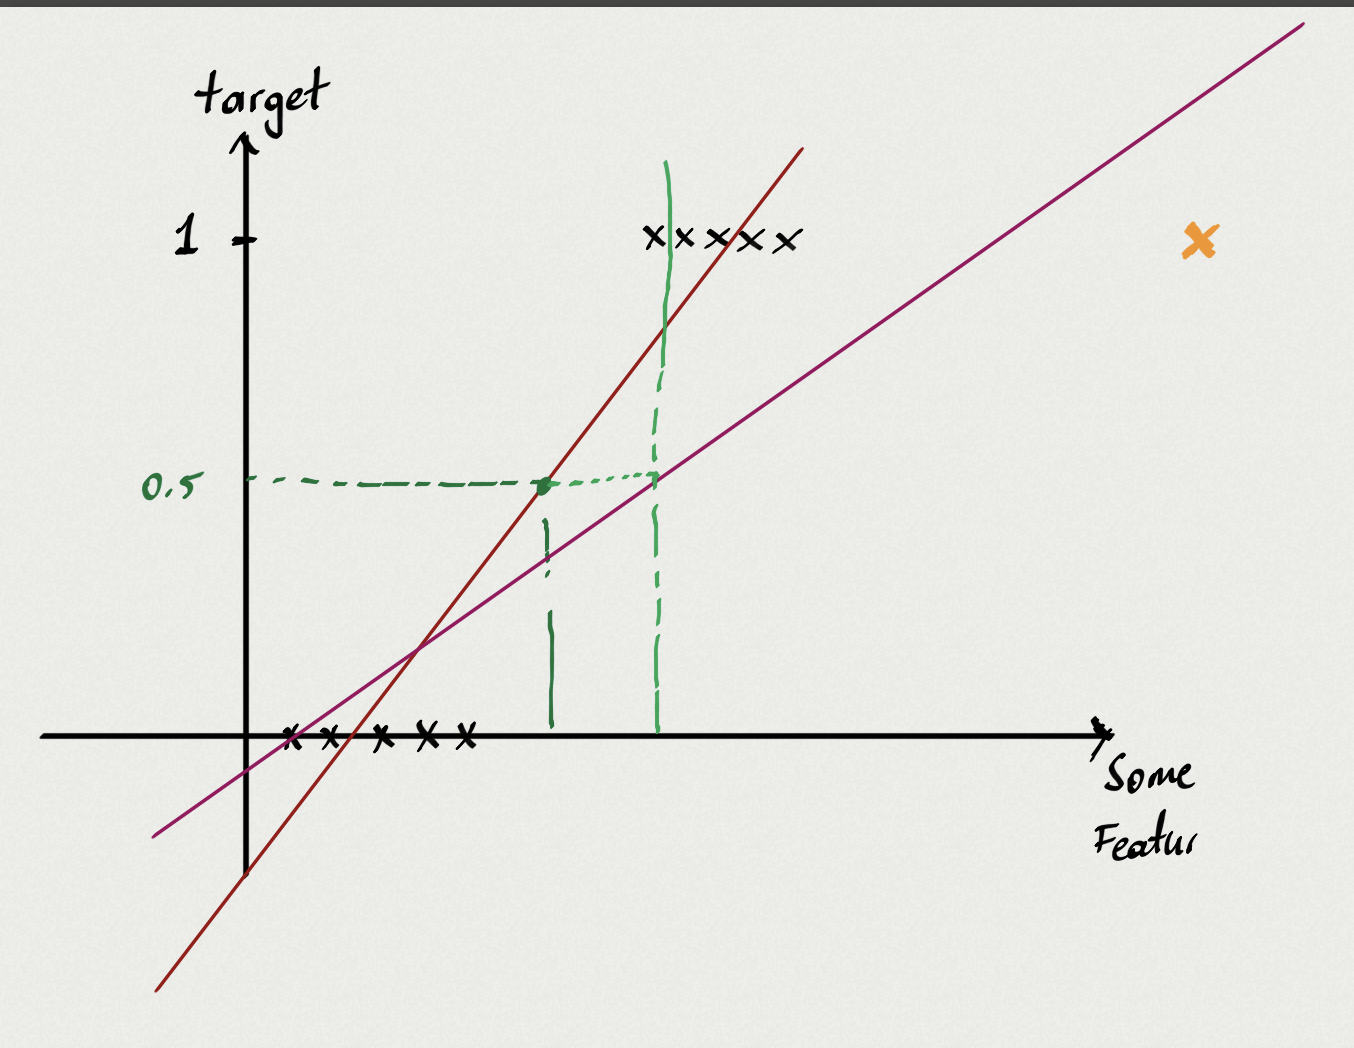 target
1
0.5
Some
Featur